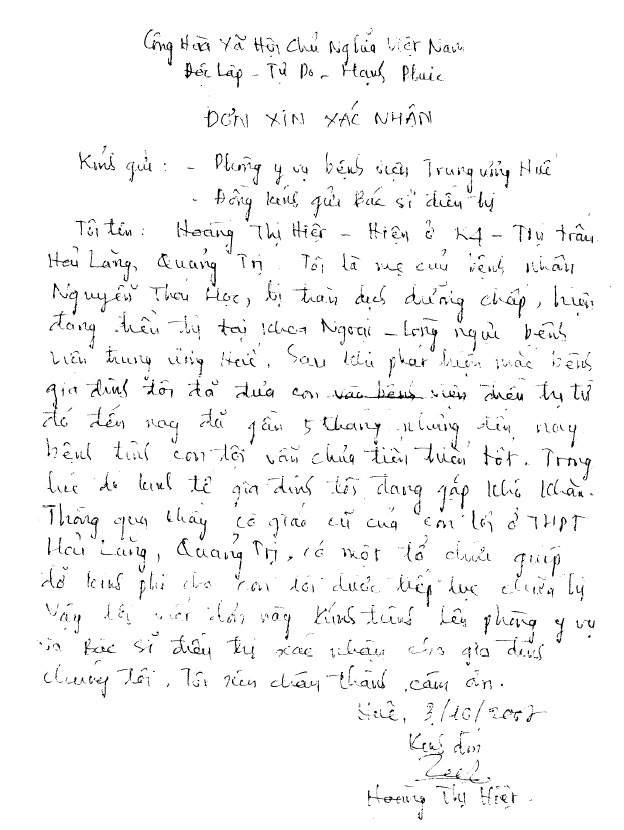 Công Hòa Xã Hội Chủ Nghĩa Việt Nam
Độc Lập - Tự Do - Hạnh Phúc
ĐƠN XIN XÁC NHẬN
Kính gửi : - Phòng y vụ bệnh viện Trung ương Huế
- Đồng kính gửi Bác sĩ điều trị
Tôi tên : Hoàng Thị Hiệt - Hiện ở K4 - Thị trấn
Hải Lăng, Quảng Trị. Tôi là mẹ của bệnh nhân
Nguyễn Thái Học, bị tràn dịch dưỡng chấp, hiện
đang điều trị tại khoa Ngoại - lồng ngực bệnh
viện trung ương Huế. Sau khi phát hiện mắc bệnh
gia đình tôi đã đưa con vào bệnh viện điều trị từ
đó đến nay đã gần 5 tháng nhưng đến nay
bệnh tình con tôi vẫn chưa tiến triển tốt. Trong
lúc đó kinh tế gia đình tôi đang gặp khó khăn.
Thông qua thầy cô giáo cũ của con tôi ở THPT
Hải Lăng, Quảng Trị, có một tổ chức giúp
đỡ kinh phí cho con tôi được tiếp tục chữa trị
Vậy tôi viết đơn này kính trình lên phòng y vụ
và Bác sĩ điều trị xác nhận cho gia đình
chúng tôi. Tôi xin chân thành cám ơn.
Huế, 3/10/2007
Kính đơn
Hoàng Thị Hiệt.